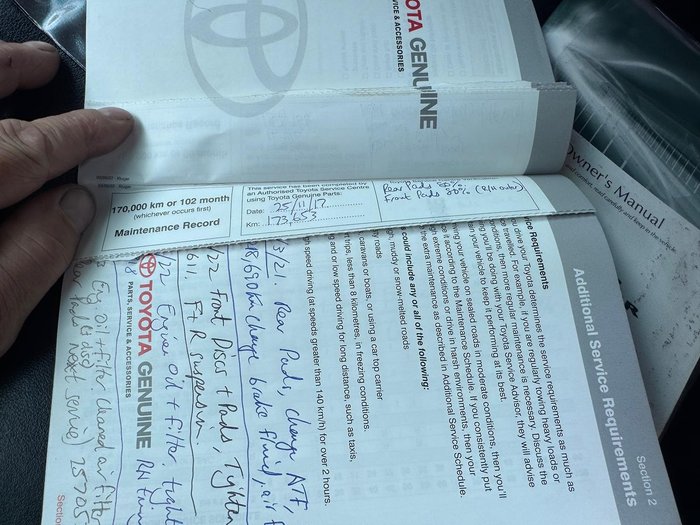 OTA GENUINE
RVICE & ACCESSORIES
170,000 km or 102 month
(whichever occurs first)
Maintenance Record
This service has been completed by
an Authorised Toyota Service Centre
using Toyota Genuine Parts:
Date: 25/11/17
Km: 173,653
Rear Pads 80%
Front Pads 30%
Owner's Manual
and comfort, read carefully and keep in the vehicle.
Section 2
Additional Service Requirements
ice Requirements
you drive your Toyota determines the service requirements as much as
travelled. For example, if you are regularly towing heavy loads or
conditions, then more regular maintenance is necessary. Discuss the
be doing with your Toyota Service Advisor, they will advise
your vehicle to keep it performing at its best.
ving your vehicle on sealed roads in moderate conditions, then you'll
it according to the Maintenance Schedule. If you consistently put
extreme conditions or drive in harsh environments, then your
the extra maintenance as described in Additional Service Schedule.
s could include any or all of the following:
y roads
h, muddy or snow-melted roads
caravans or boats, or using a car top carrier
trips, less than 8 kilometres, in freezing conditions
ng and or low speed driving for long distance, such as taxis,
h speed driving (at speeds greater than 140 km/h) for over 2 hours.
3/21 Rear Pads, change ATF,
change brake fluid, air f
/22 Front Discs + Pads, Tighten
611, F+R suspension.
/22 Engine oil + filter, tight
TOYOTA GENUINE
PARTS, SERVICE & ACCESSORIES
Eng oil + filter Cleaned air filter
next service) 257205
Sectio